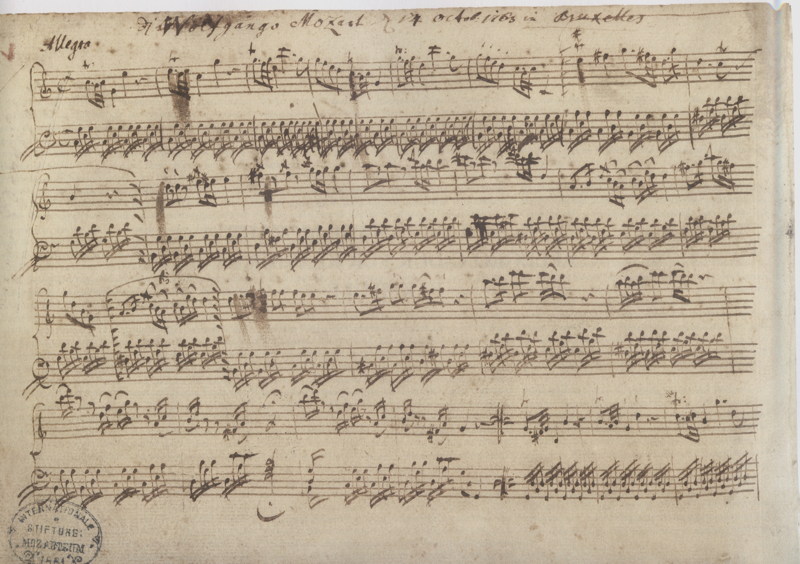 Wolfgango Mozart 14 octob. 1763 in Bruxelles
Allegro
INTERNATIONALE
STIFTUNG:
MOZARTEUM
1881